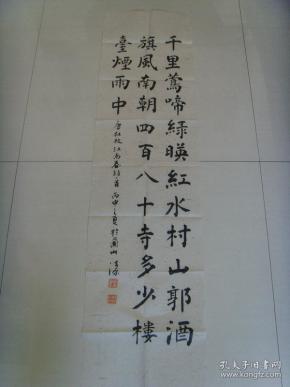 千里鶯啼緑暎紅水村山郭酒
旗風南朝四百八十寺多少樓
臺煙雨中
唐杜牧江南春詩一首 丙申之夏於
孔夫子旧书网